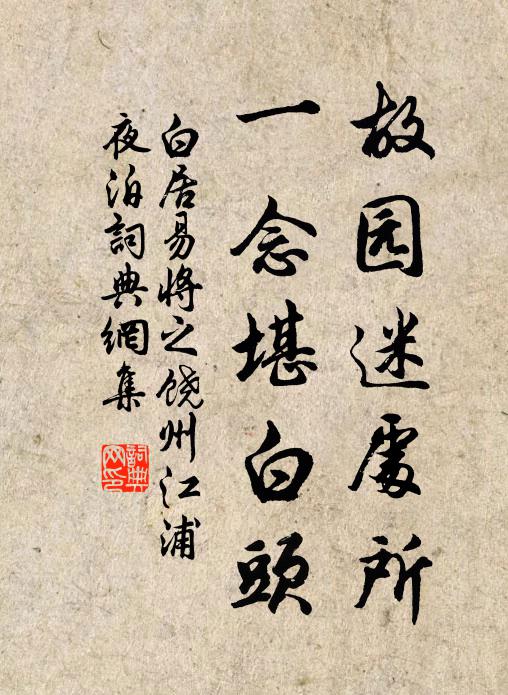 故园迷處所
一念堪白頭
白居易將之饒州江浦
夜泊詞典網集
詞典网印